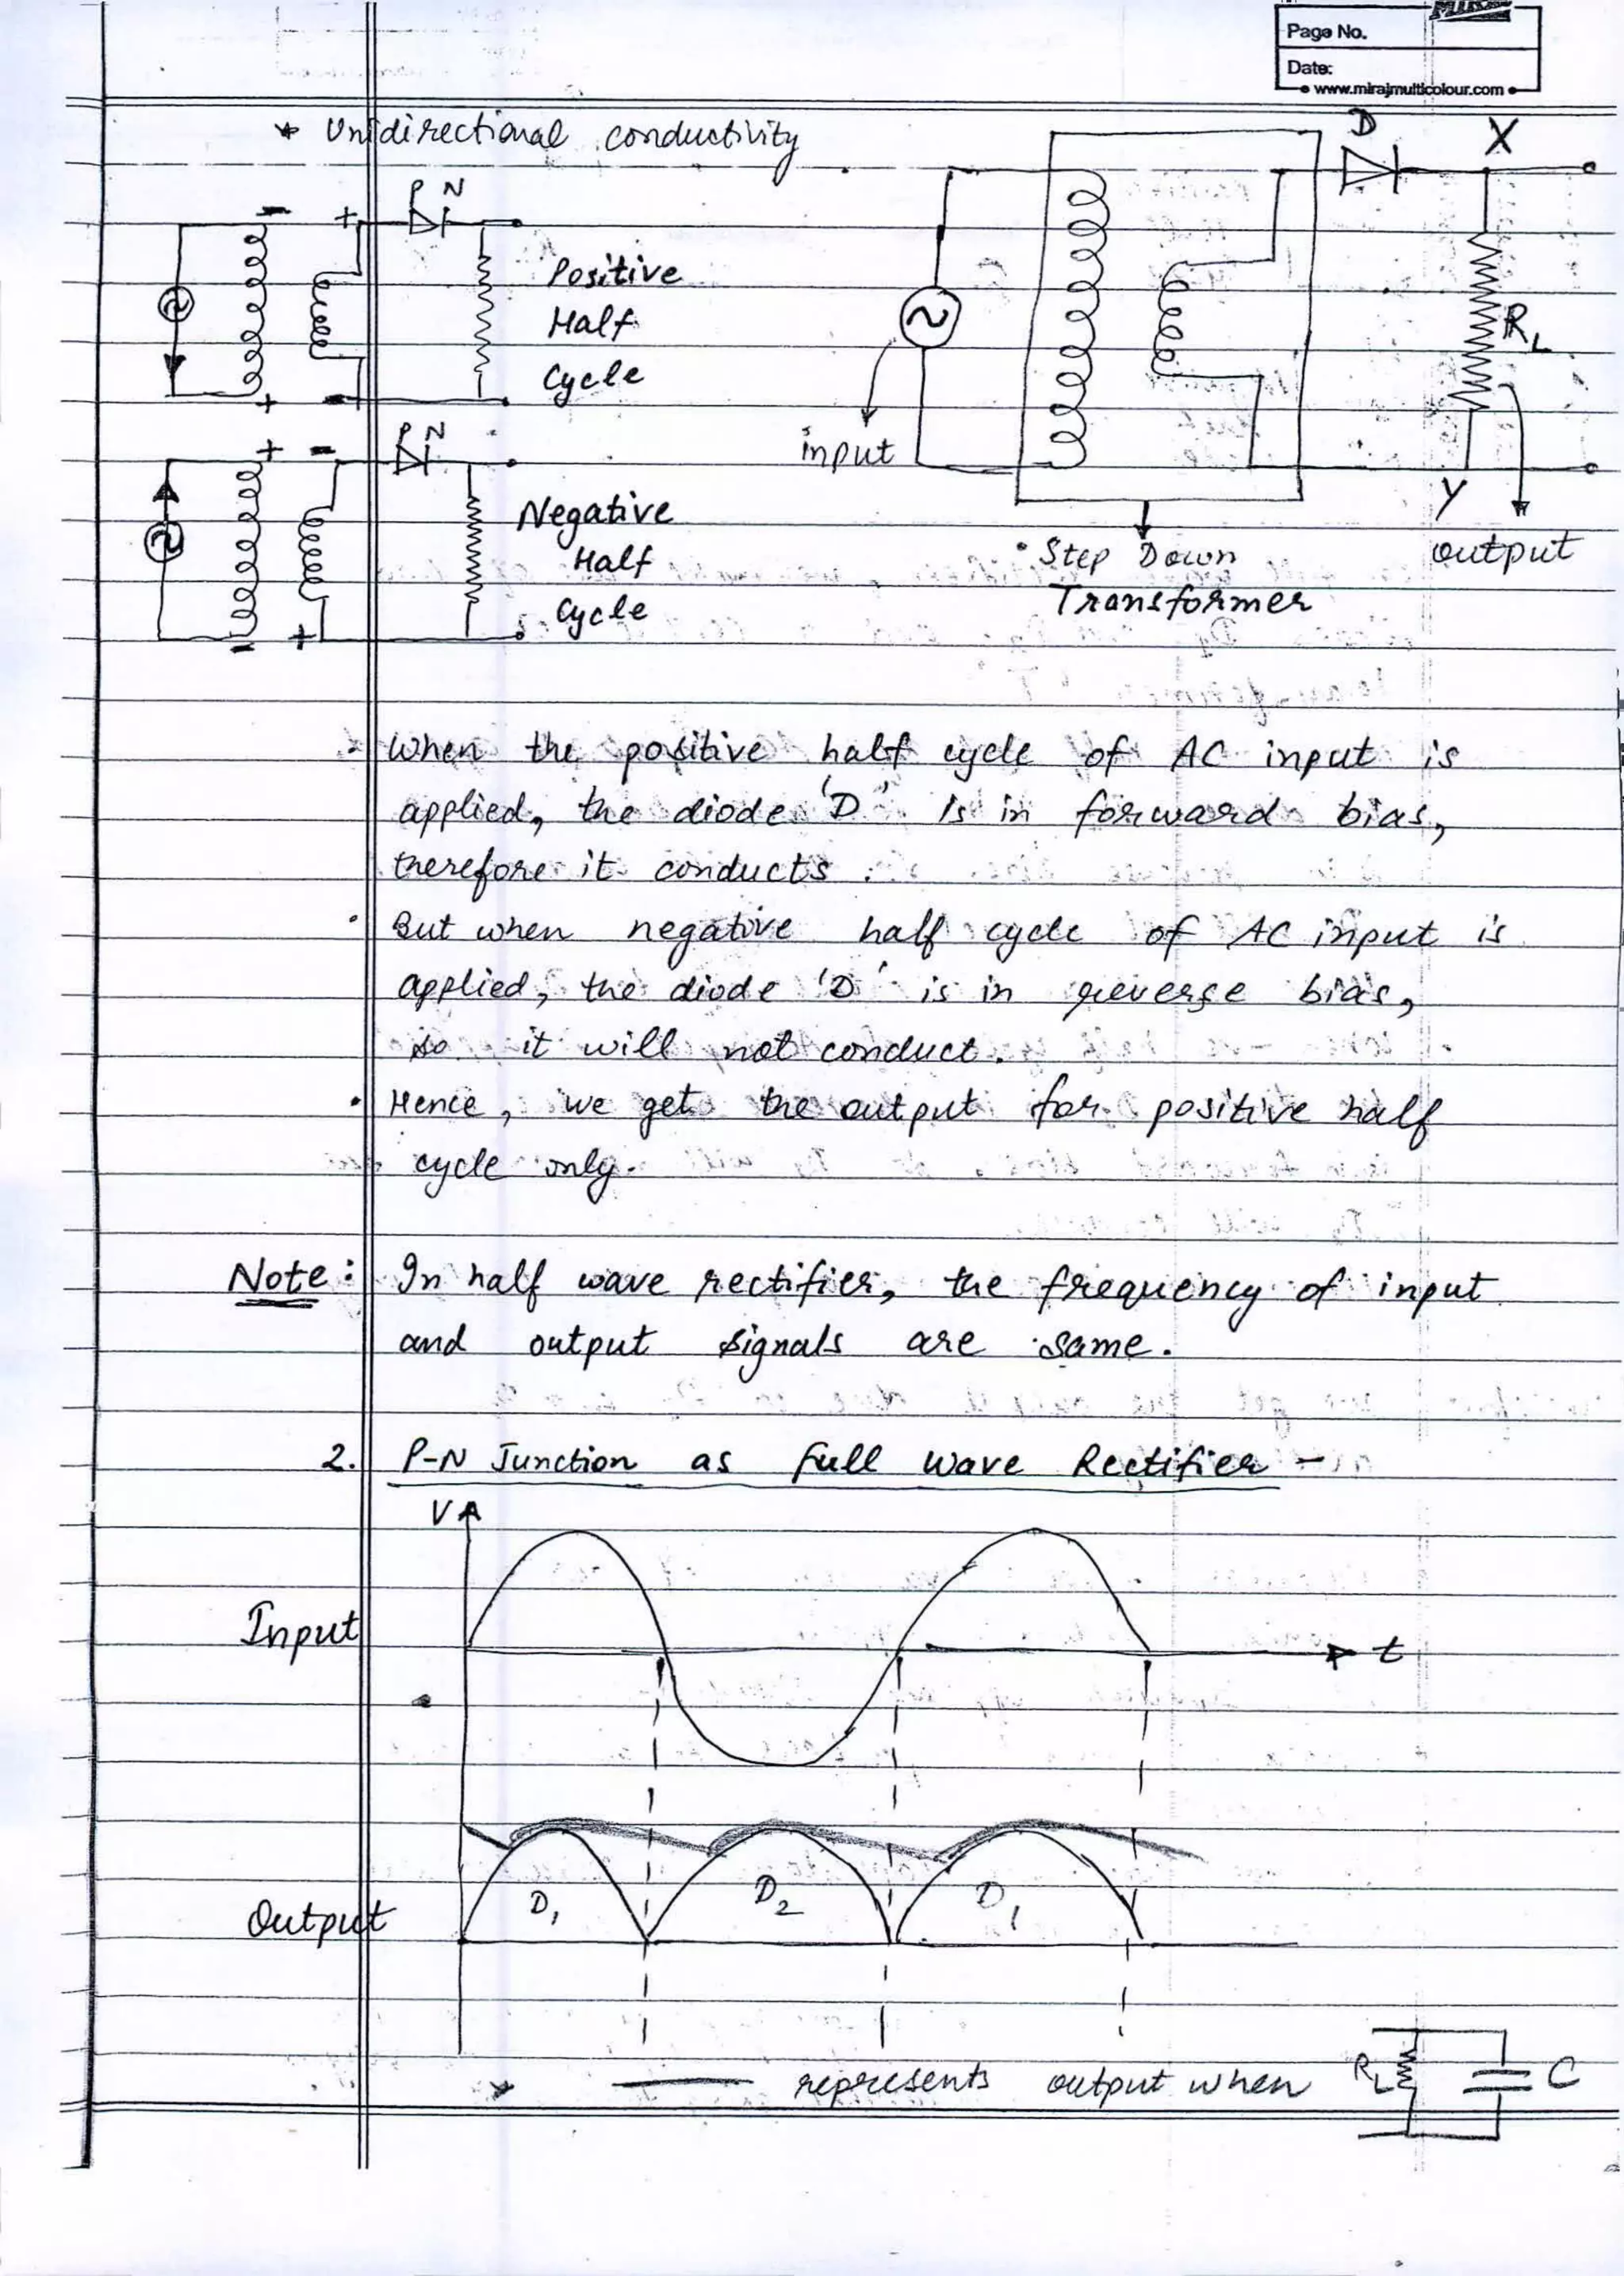 Page No.
Date:
www.mirajmulticolour.com
* Unidirectional conductivity
P N
- +
Positive
Half
Cycle
+ -
P N
+ -
Negative
Half
Cycle
- +
D X
R_L
input
Y
Step Down
Transformer
output
• When the positive half cycle of AC input is
applied, the diode 'D' is in forward bias,
therefore it conducts.
• But when negative half cycle of AC input is
applied, the diode 'D' is in reverse bias,
so it will not conduct.
• Hence, we get the output for positive half
cycle only.
Note: In half wave rectifier, the frequency of input
and output signals are same.
2. P-N Junction as full wave Rectifier -
V
Input
t
D1 D2 D1
Output
represents output when R_L C